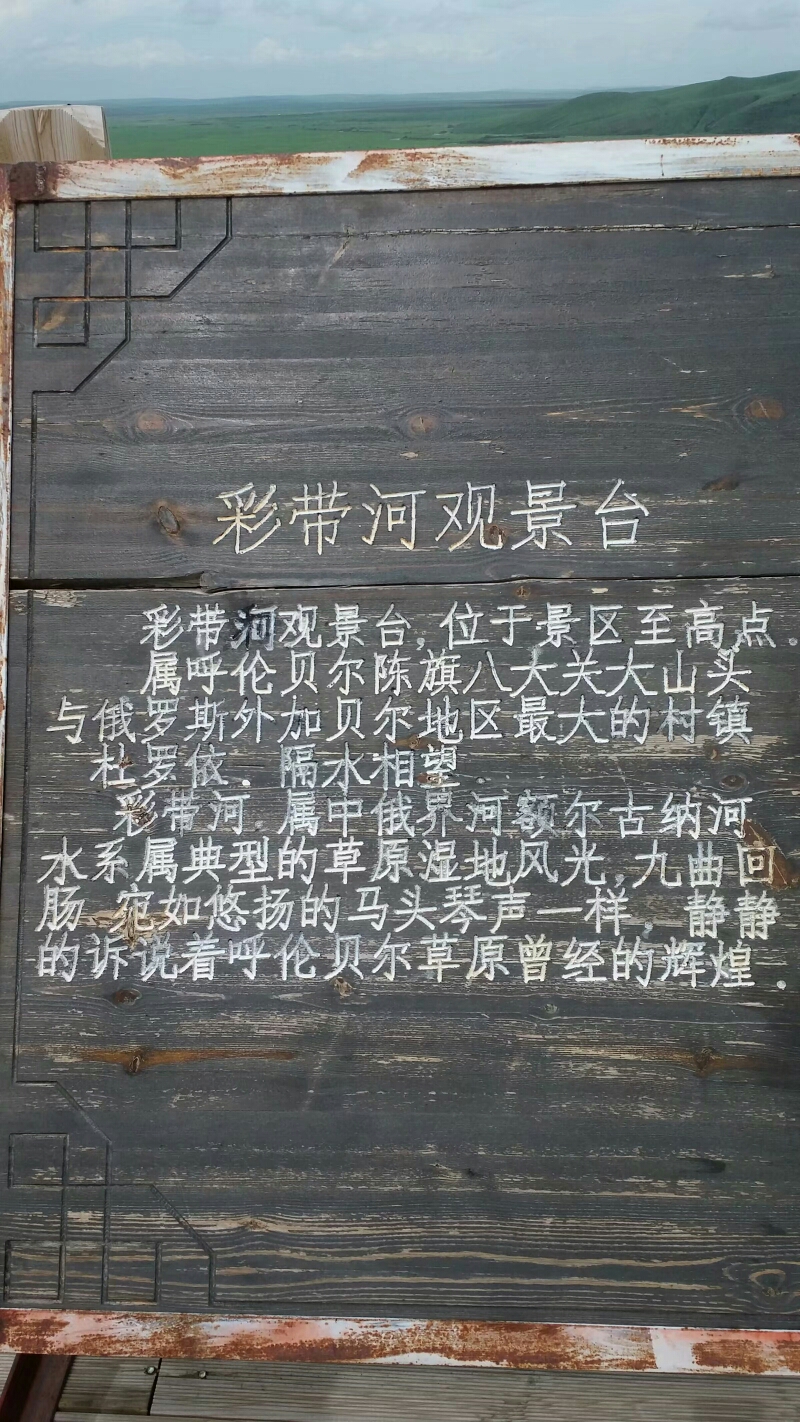 彩带河观景台
彩带河观景台,位于景区至高点.
属呼伦贝尔陈旗八大关大山头
与俄罗斯外加贝尔地区最大的村镇
杜罗依.隔水相望.
彩带河 属中俄界河额尔古纳河
水系属典型的草原湿地风光,九曲回
肠 宛如悠扬的马头琴声一样. 静静
的诉说着呼伦贝尔草原曾经的辉煌.